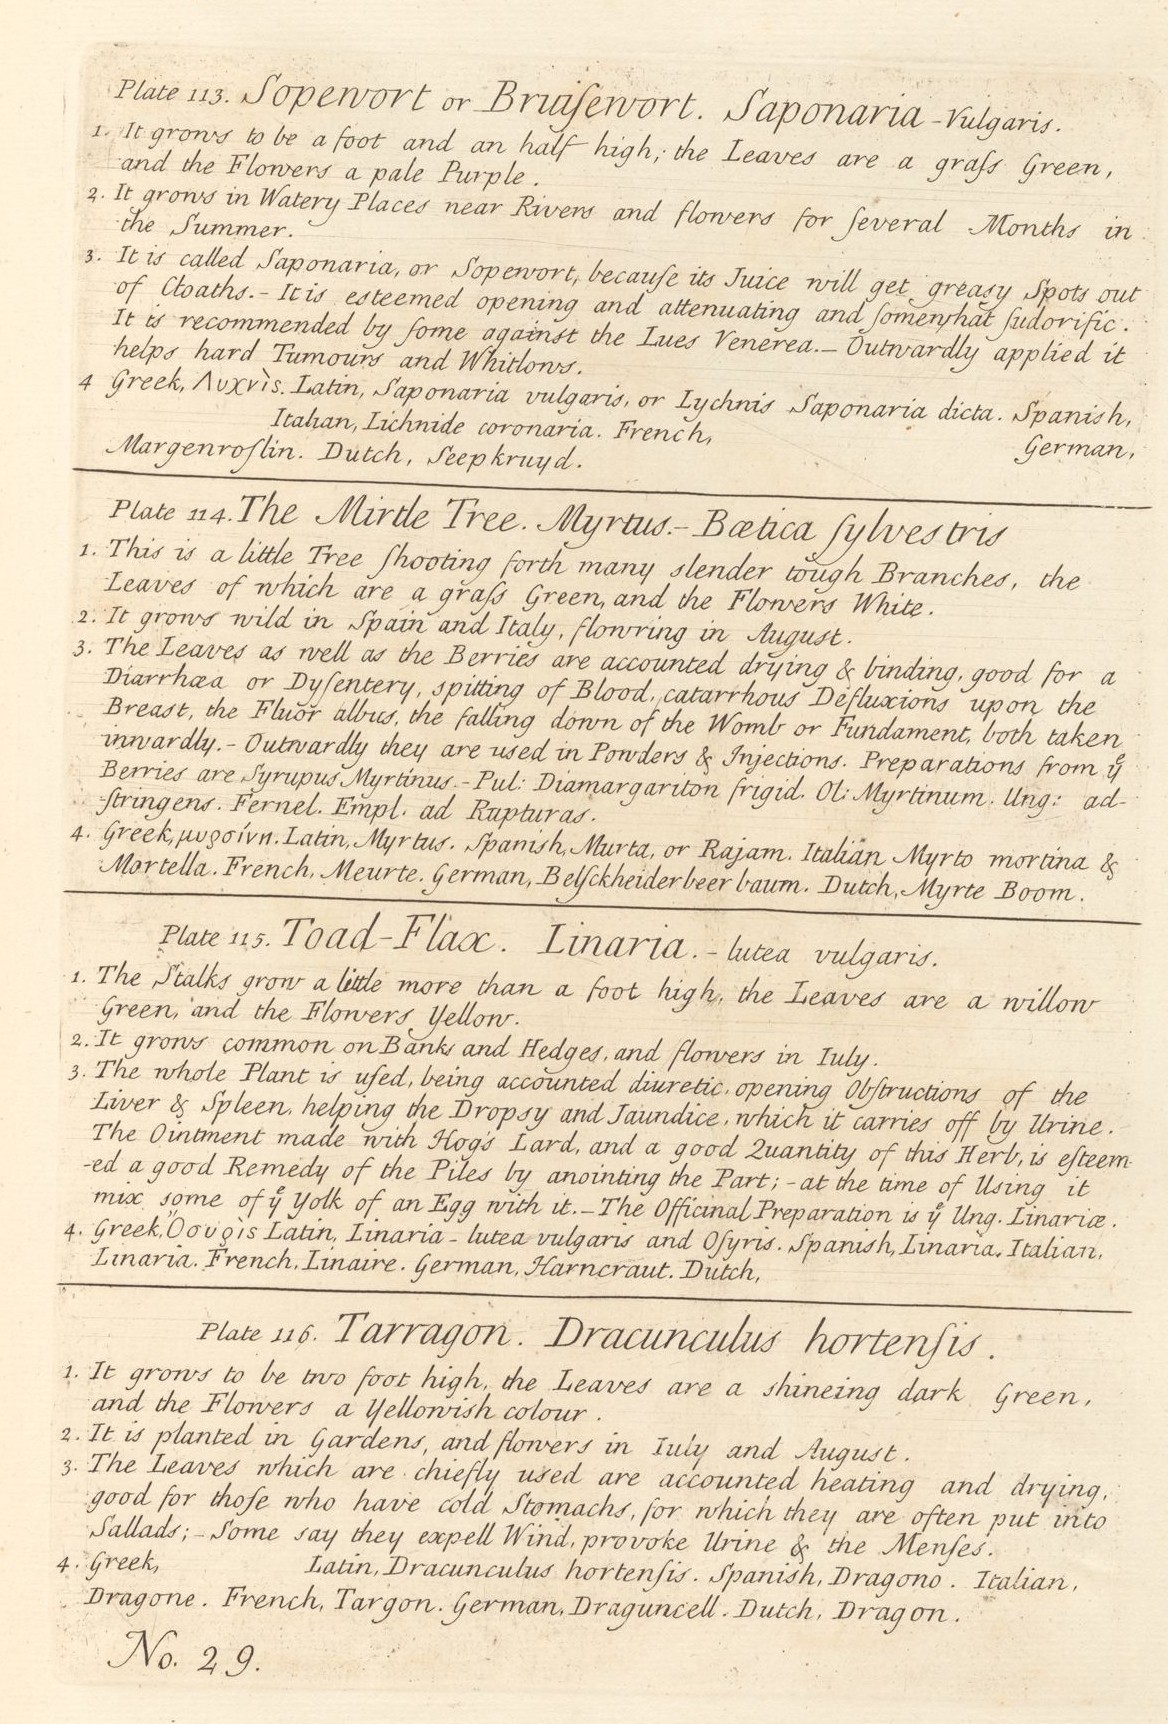 Plate 113. Sopewort or Bruiſewort. Saponaria - Vulgaris.
1. It grows to be a foot and an half high; the Leaves are a graſs Green,
and the Flowers a pale Purple.
2. It grows in Watery Places near Rivers and flowers for ſeveral Months in
the Summer.
3. It is called Saponaria, or Sopewort, becauſe its Juice will get greasy Spots out
of Cloaths. - It is esteemed opening and attenuating and ſomewhat ſudorific.
It is recommended by ſome against the Lues Venerea. - Outwardly applied it
helps hard Tumours and Whitlows.
4 Greek, Λυχνὶς. Latin, Saponaria vulgaris, or Lychnis Saponaria dicta. Spanish,
Italian, Lichnide coronaria. French, German,
Margenroſlin. Dutch, Seepkruyd.
Plate 114. The Mirtle Tree. Myrtus. - Bætica ſylvestris
1. This is a little Tree ſhooting forth many slender tough Branches, the
Leaves of which are a graſs Green, and the Flowers White.
2. It grows wild in Spain and Italy, flowring in August.
3. The Leaves as well as the Berries are accounted drying & binding, good for a
Diarrhæa or Dyſentery, spitting of Blood, catarrhous Defluxions upon the
Breast, the Fluor albus, the falling down of the Womb or Fundament, both taken
inwardly. - Outwardly they are used in Powders & Injections. Preparations from yͤ
Berries are Syrupus Myrtinus. - Pul: Diamargariton frigid. Ol: Myrtinum. Ung: ad-
ſtringens. Fernel. Empl. ad Rupturas.
4. Greek, μυρσίνη. Latin, Myrtus. Spanish, Murta, or Rajam. Italian Myrto mortina &
Mortella. French, Meurte. German, Belſckheiderbeer baum. Dutch, Myrte Boom.
Plate 115. Toad-Flax. Linaria. - lutea vulgaris.
1. The Stalks grow a little more than a foot high, the Leaves are a willow
Green, and the Flowers Yellow.
2. It grows common on Banks and Hedges, and flowers in Iuly.
3. The whole Plant is uſed, being accounted diuretic, opening Obſtructions of the
Liver & Spleen, helping the Dropsy and Jaundice, which it carries off by Urine.
The Ointment made with Hog's Lard, and a good Quantity of this Herb, is eſteem-
-ed a good Remedy of the Piles by anointing the Part; - at the time of Using it
mix some of yͤ Yolk of an Egg with it. - The Officinal Preparation is yͤ Ung. Linariæ.
4. Greek, Ὄσυρὶς Latin, Linaria - lutea vulgaris and Oſyris. Spanish, Linaria. Italian,
Linaria. French, Linaire. German, Harncraut. Dutch,
Plate 116. Tarragon. Dracunculus hortenſis.
1. It grows to be two foot high, the Leaves are a shineing dark Green,
and the Flowers a Yellowish colour.
2. It is planted in Gardens, and flowers in Iuly and August.
3. The Leaves which are chiefly used are accounted heating and drying,
good for thoſe who have cold Stomachs, for which they are often put into
Sallads; - Some say they expell Wind, provoke Urine & the Menſes.
4. Greek, Latin, Dracunculus hortenſis. Spanish, Dragono. Italian,
Dragone. French, Targon. German, Draguncell. Dutch, Dragon.
No. 29.